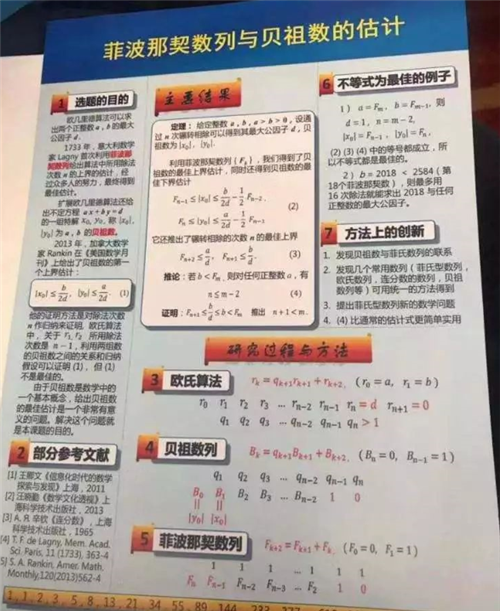 菲波那契数列与贝祖数的估计
1 选题的目的
欧几里德算法可以求
出两个正整数 a, b 的最大
公因子 d。
1733 年，意大利数学
家 Lagny 首次利用菲波那
契数列给出算法中所用除法
次数 n 的上界的估计，经
过众多人的努力，最终得到
最佳估计。
扩展欧几里德算法还给
出不定方程 ax + by = d
的一组特解 x₀, y₀, 称 |x₀|,
|y₀| 为 a, b 的贝祖数。
2013 年，加拿大数学
家 Rankin 在《美国数学月
刊》上给出了贝祖数的第一
个上界估计：
|x₀| ≤ b/2d, |y₀| ≤ a/2d (1)
他的证明方法是对除法次数
n 作归纳来证明。欧氏算法
中，关于 r₁, r₂ 所用除法
次数是 n − 1，利用两组数
的贝祖数之间的关系和归纳
假设可以证明 (1)，但 (1)
不是最佳的。
由于贝祖数是数学中的
一个基本概念，给出贝祖数
的最佳估计是一个非常有意
义的问题。解决这个问题就
是本课题的目的。
2 部分参考文献
[1] 王鄂文《信息化时代的数学
探索与发现》上海，2011
[2] 汪晓勤《数学文化透视》上
海科学技术出版社，2013
[3] А. Я. 辛钦《连分数》，上海
科学技术出版社，1965
[4] T. F. de Lagny, Mem. Acad.
Sci. Paris, 11 (1733), 363-4
[5] S. A. Rankin, Amer. Math.
Monthly,120(2013)562-4
主要结果
定理：给定整数 a, b, a > b > 0，设通
过 n 次辗转相除可以得到其最大公因子 d，贝
祖数为 |x₀|, |y₀|.
利用菲波那契数列 {Fₖ}，我们得到了贝
祖数的最佳上界估计，同时还得到贝祖数的最
佳下界估计
Fₙ₋₁ ≤ |x₀| ≤ b/2d − 1/2 Fₙ₋₂,
(2)
Fₙ ≤ |y₀| ≤ a/2d − 1/2 Fₙ₋₁.
它还推出了辗转相除的次数 n 的最佳上界
Fₙ₊₂ ≤ a/d, Fₙ₊₁ ≤ b/d. (3)
推论：若 b < Fₘ, 则对任何正整数 a，有
n ≤ m − 2 (4)
证明：Fₙ₊₁ ≤ b/d ≤ b < Fₘ 推出 n + 1 < m.
研究过程与方法
3 欧氏算法 rₖ = qₖ₊₁rₖ₊₁ + rₖ₊₂, (r₀ = a, r₁ = b)
r₀ r₁ r₂ r₃ … rₙ₋₂ rₙ₋₁ rₙ = d rₙ₊₁ = 0
q₁ q₂ q₃ … qₙ₋₂ qₙ₋₁ qₙ > 1
4 贝祖数列 Bₖ = qₖ₊₁Bₖ₊₁ + Bₖ₊₂, (Bₙ = 0, Bₙ₋₁ = 1)
q₁ q₂ q₃ … qₙ₋₂ qₙ₋₁ qₙ
B₀ B₁ B₂ B₃ … Bₙ₋₂ 1 0
|| ||
|y₀| |x₀|
5 菲波那契数列 Fₖ₊₂ = Fₖ₊₁ + Fₖ (F₀ = 0, F₁ = 1)
1 1 1 … 1 1 1
Fₙ Fₙ₋₁ Fₙ₋₂ Fₙ₋₃ … F₂ 1 0
6 不等式为最佳的例子
1） a = Fₘ, b = Fₘ₋₁, 则
d = 1, n = m − 2,
|x₀| = Fₙ₋₁, |y₀| = Fₙ.
(2) (3) (4) 中的等号都成立，所
以不等式都是最佳的。
2）b = 2018 < 2584 ( 第
18个菲波那契数 )，则最多用
16 次除法就能求出 2018 与任何
正整数的最大公因子。
7 方法上的创新
1. 发现贝祖数与菲氏数列的联系
2. 发现几个常用数列 ( 菲氏型数列，
欧氏数列，连分数的数列，贝祖
数列等 ) 可用统一的方法得到
3. 提出菲氏型数列新的数学问题
4. (4) 比通常的估计式更简单实用
1, 1, 2, 3, 5, 8, 13, 21, 34, 55, 89, 144, 233,